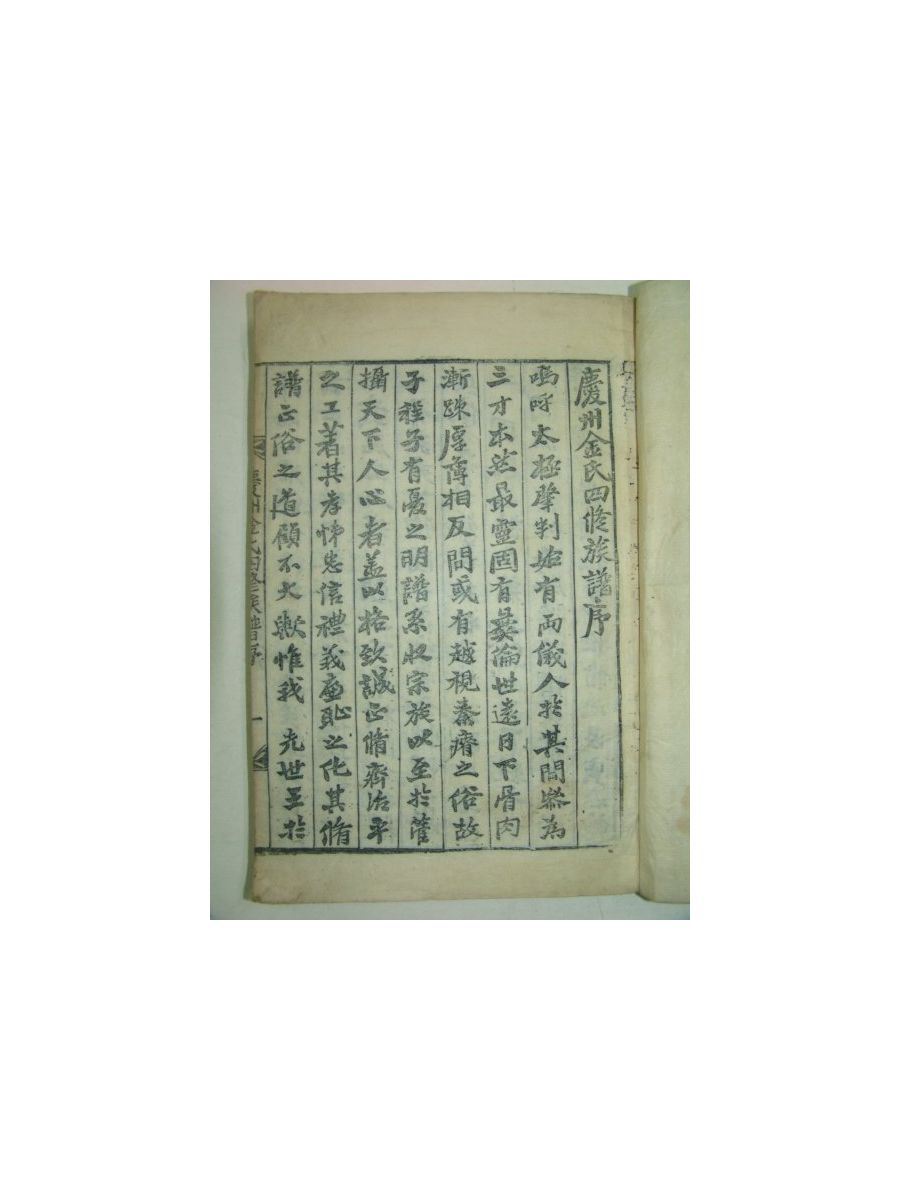 慶州金氏四修族譜序
嗚呼太極肇判始有兩儀人於其間叅為
三才本然最靈固有彛倫世遠日下骨肉
漸踈厚薄相反間或有越視秦瘠之俗故
子程子有憂之明譜系收宗族以至於管
攝天下人心者盖以格致誠正脩齊治平
之工著其孝悌忠信禮義廉恥之化其脩
譜正俗之道顧不大歟惟我 先世王於
慶州金氏四修族譜序 一